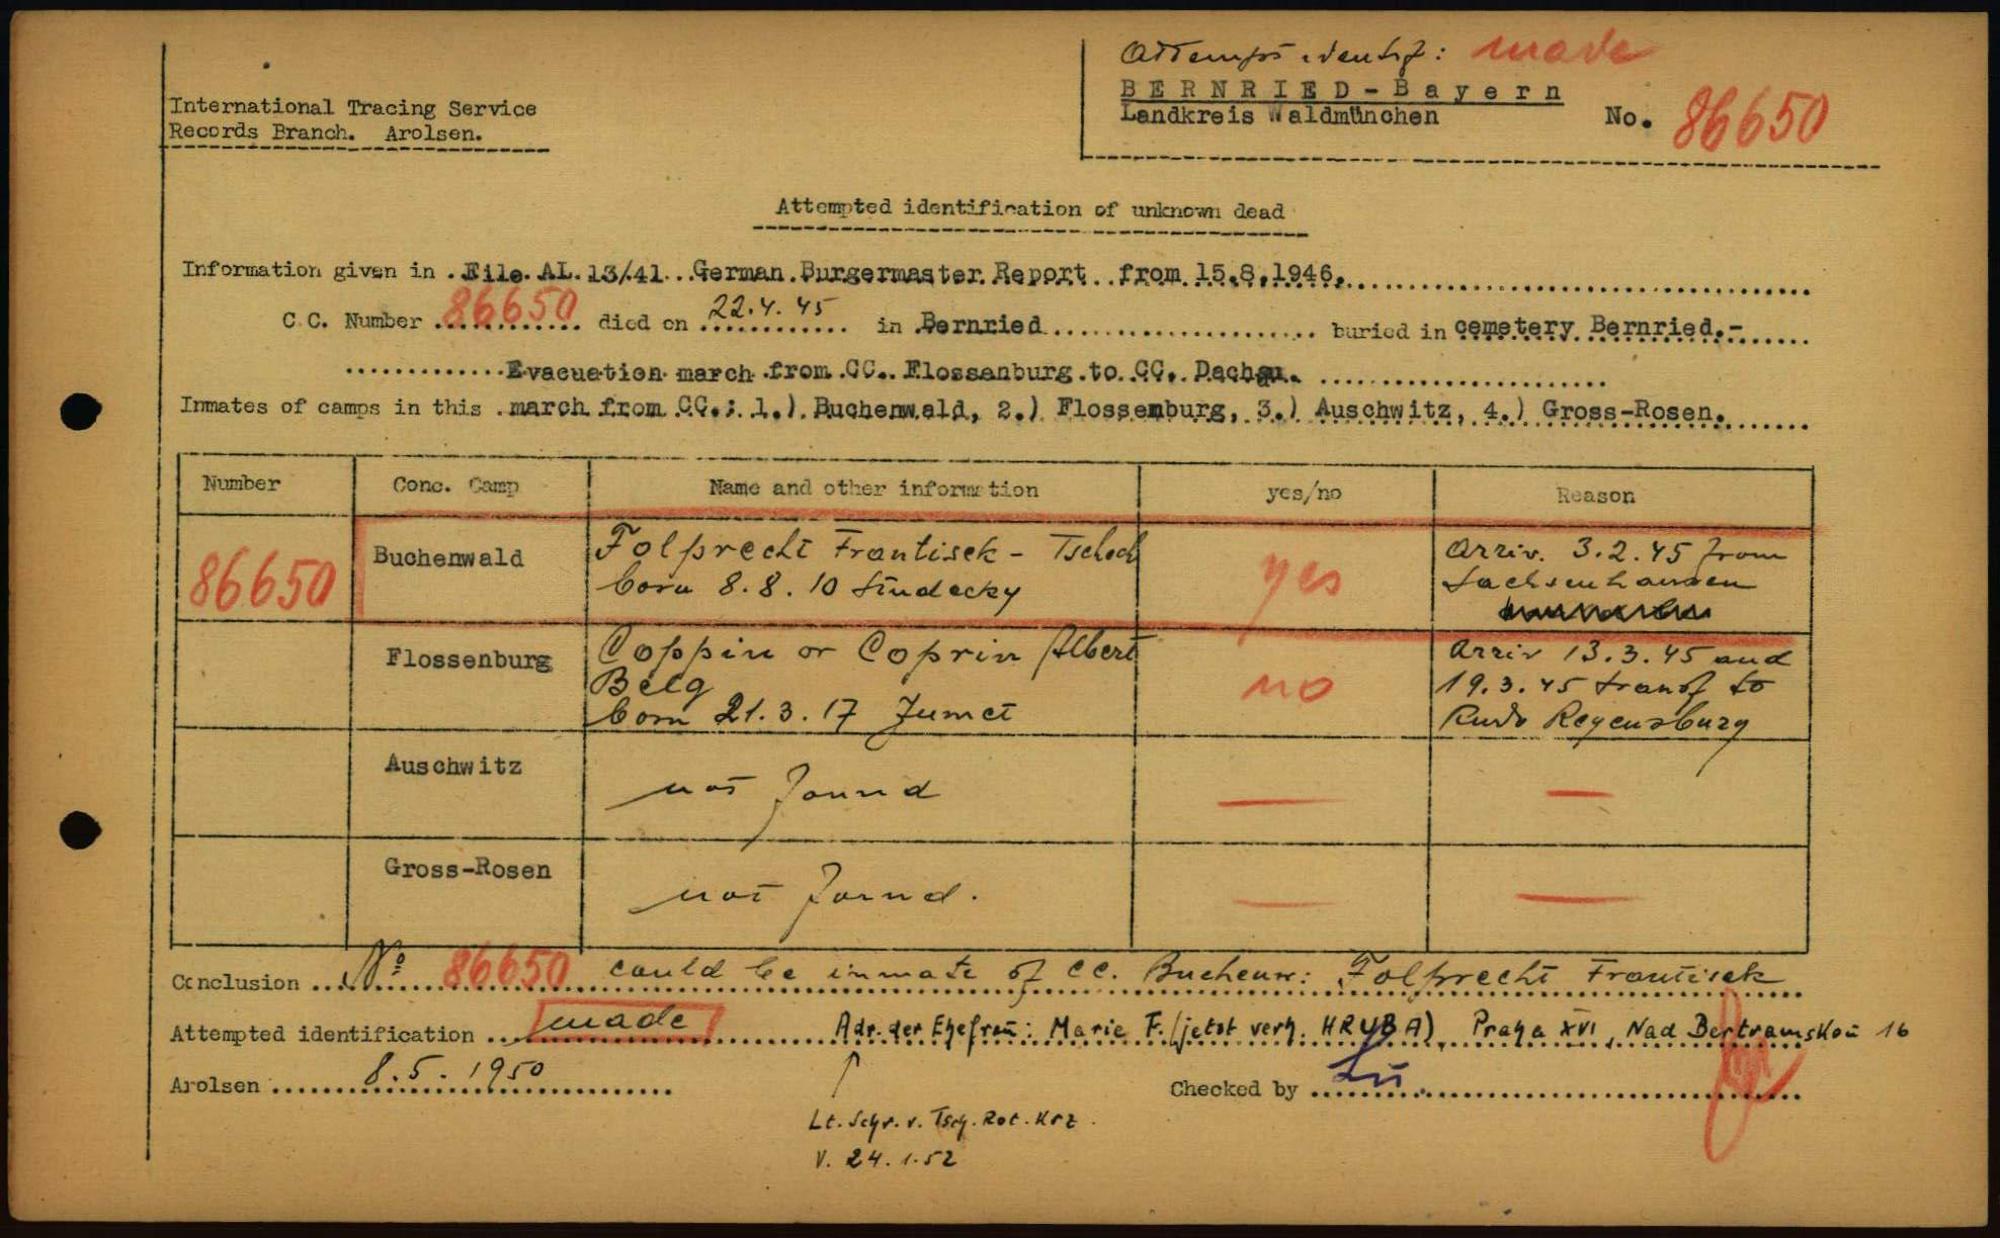 Attempt identif: made
BERNRIED-Bayern
Landkreis Waldmünchen
No. 86650
International Tracing Service
Records Branch. Arolsen.
Attempted identification of unknown dead
Information given in . File. AL. 13/41... German. Burgermaster Report.. from 15.8.1946.
C.C. Number 86650 died on 22.4.45 in Bernried buried in cemetery Bernried.-
Evacuation march from CC. Flossenburg to CC. Dachau.
Inmates of camps in this march from CC.: 1.) Buchenwald, 2.) Flossenburg, 3.) Auschwitz, 4.) Gross-Rosen.
Number Conc. Camp Name and other information yes/no Reason
86650 Buchenwald Folprecht Frantisek - Tschech yes Arriv. 3.2.45 from
born 8.8.10 Sachsenhausen
Flossenburg Coppin or Coprin Albert no Arriv 13.3.45 and
Belg 19.3.45 transf to
born 21.3.17 Jumet Kdo Regensburg
Auschwitz not found — —
Gross-Rosen not found. — —
Conclusion No 86650 could be inmate of CC. Buchenw: Folprecht Frantisek
Attempted identification made Adr. der Ehefrau: Marie F. (jetzt verh. HRYBA), Praha XVI, Nad Bertramskou 16
Arolsen 8.5.1950 Checked by
Lt. Schr. v. Tsch. Rot. Krz.
v. 24.1.52